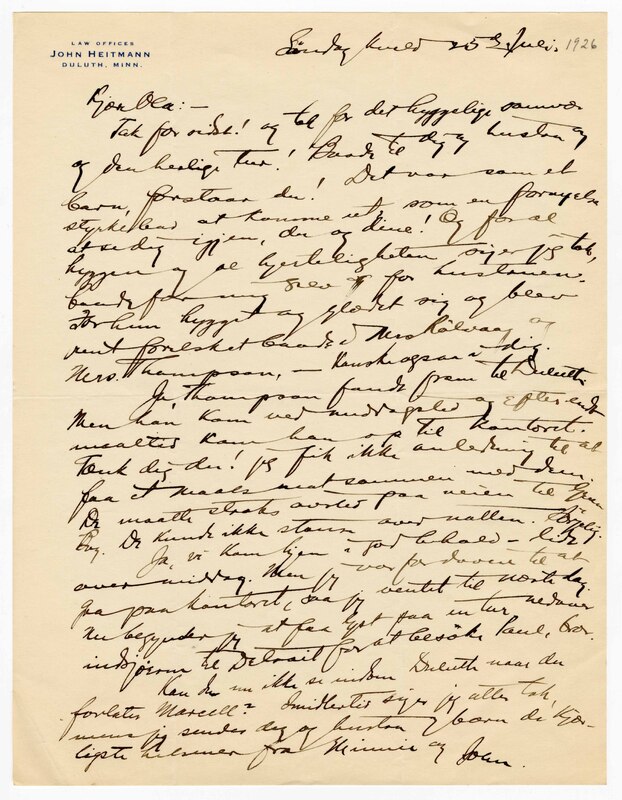 LAW OFFICES
JOHN HEITMANN
DULUTH, MINN.
Söndag kveld 25de Juli. 1926
Kjære Ola: —
Tak for sidst! og tak for det hyggelige samvær
og den herlige tur! Baade til dig og hustru og
barn, forstaar du! Det var som et
styrkebad at komme ut, som en fornyelse
at se dig igjen, du og dine! Og for al
hyggen og al hjerteligheten siger jeg tak,
baade for mig selv og for hustruen.
For hun hygget og glædet sig og blev
rent forelsket baade i Mrs Rölvaag og
Mrs. Thompson, — kanske ogsaa i dig.
Ja, Thompson fandt frem til Duluth
Men han kom ved middagstid og efter endt
maaltid kom han op til kontoret.
Tænk dig du! jeg fik ikke anledning til at
faa et maals mat sammen med dem.
De maatte straks avsted paa veien til
De kunde ikke stanse over natten.
Ja, vi kom hjem i god behold — lidt
over middag. Men jeg var for doven til at
gaa paa kontoret, saa jeg ventet til næste dag.
Nu begynder jeg at faa lyst paa en tur nedover
indsjöerne til Detroit for at besöke Paul, bror.
Kan du nu ikke se indom Duluth naar du
forlater Marcell? Imidlertid siger jeg atter tak,
mens jeg sender dig og hustru og barn de kjær-
ligste hilsener fra Minnie og John.